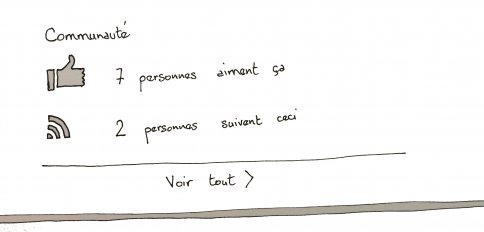 Communauté
7 personnes aiment ça
2 personnes suivent ceci
Voir tout >